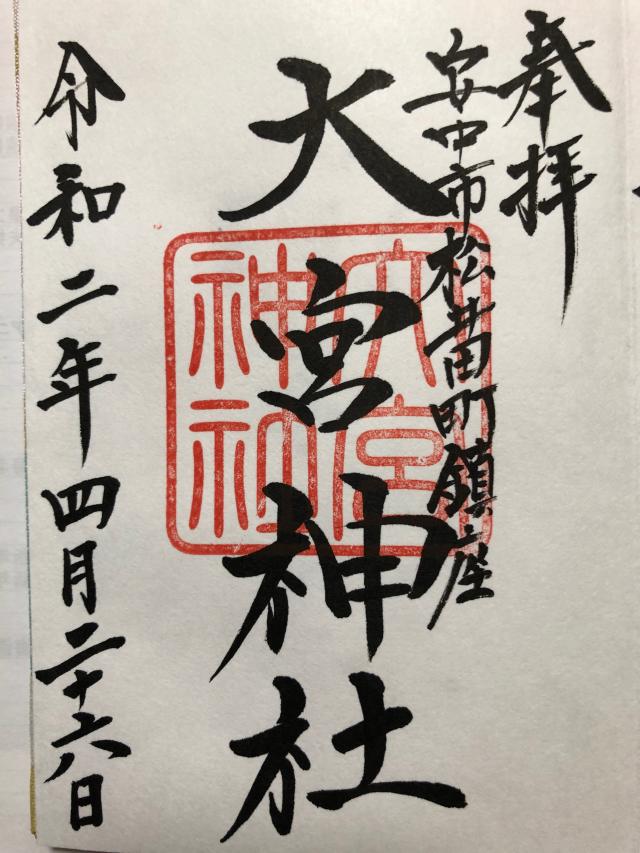 奉拝
安中市松井田町鎮座
大宮神社
大宮
神社
令和二年四月二十六日